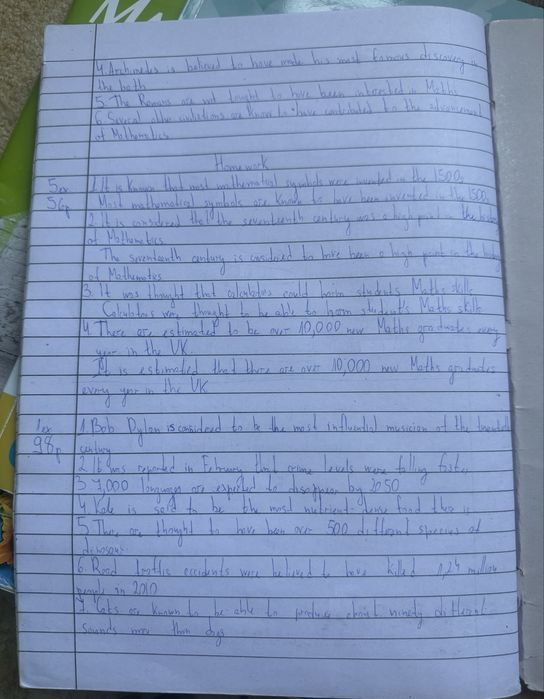 4. Archimedes is believed to have made his most famous discovery in
the bath
5. The Romans are not thought to have been interested in Maths
6. Several other civilations are known to have contributed to the advancement
of Mathematics
Homework
5 ex
56 p
1. It is known that most mathematical symbols were invented in the 1500s
Most mathematical symbols are known to have been invented in the 1500s
2. It is considered that the seventeenth century was a high point in the history
of Mathematics
The seventeenth century is considered to have been a high point in the history
of Mathematics
3. It was thought that calculators could harm students Maths skills
Calculators were thought to be able to harm student's Maths skills
4. There are estimated to be over 10,000 new Maths graduates every
year in the UK.
It is estimated that there are over 10,000 new Maths graduates
every year in the UK
1 ex
98 p
1. Bob Dylan is considered to be the most influential musician of the twentieth
century
2. It was reported in February that crime levels were falling faster
3. 7,000 languages are expected to disappear by 2050
4. Kale is said to be the most nutrient-dense food there is
5. There are thought to have been over 500 different species of
dinosaur.
6. Road traffic accidents were believed to have killed 1,24 million
people in 2010
7. Cats are known to be able to produce ninety different
sounds more than dogs